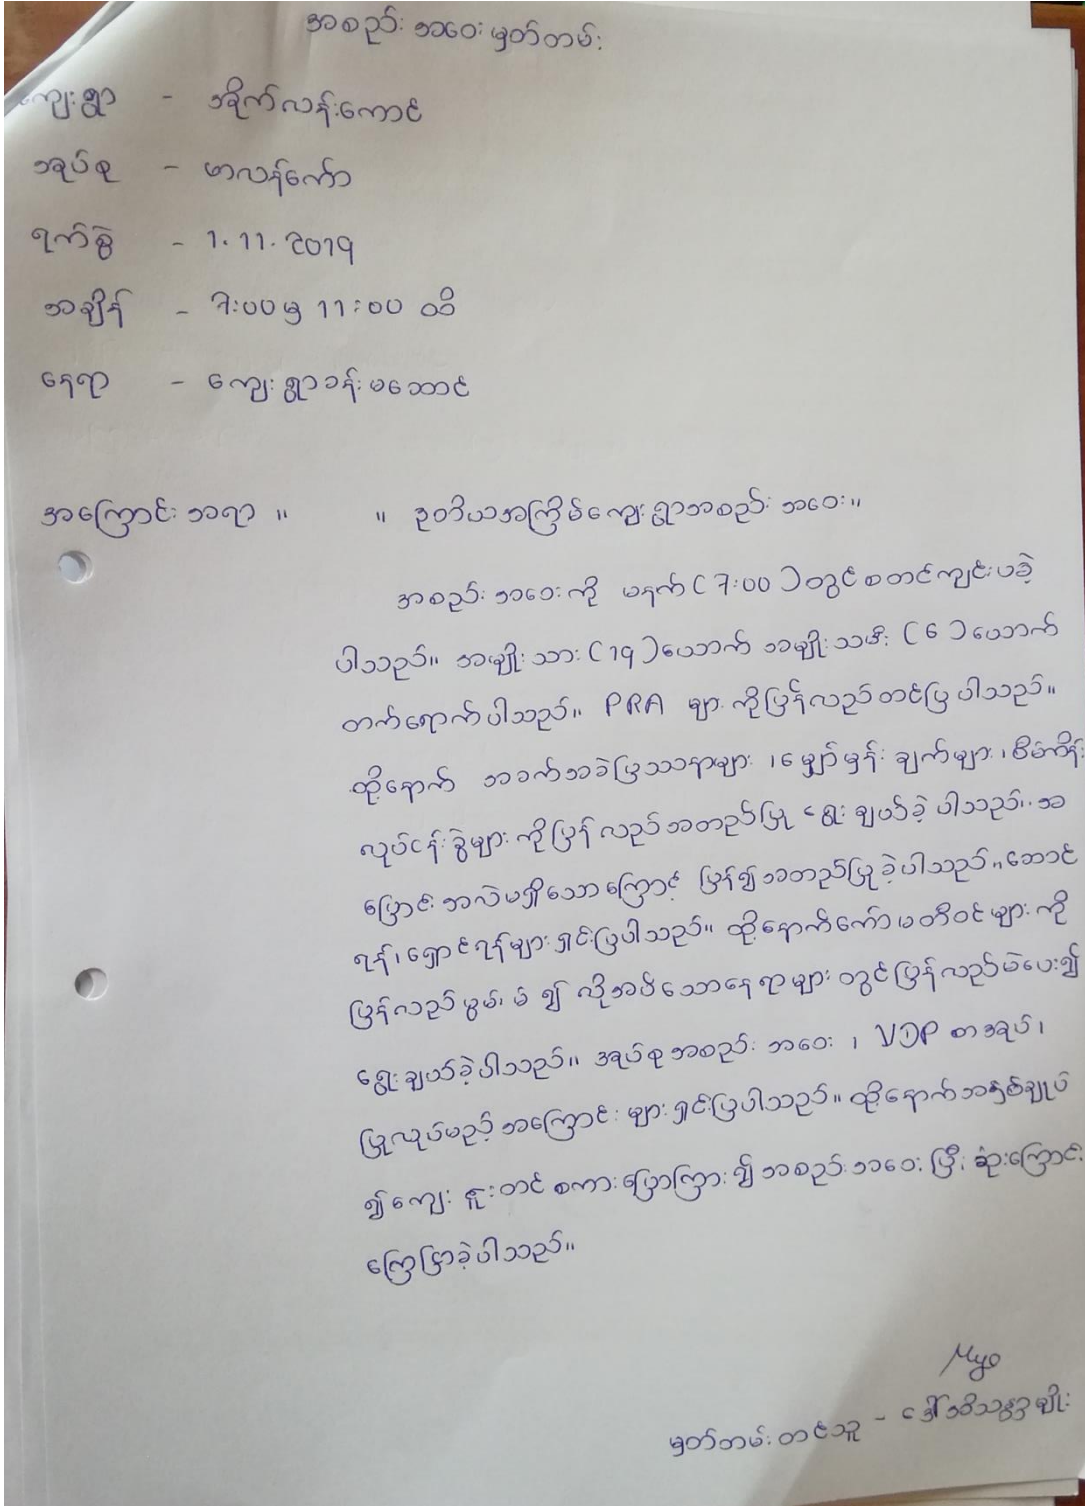 အစည်းအဝေးမှတ်တမ်း
ကျေးရွာ - အိုက်လန်းကောင်
အုပ်စု - ဟာလန်ကော်
ရက်စွဲ - 1.11.2019
အချိန် - 7:00မှ 11:00 ထိ
နေရာ - ကျေးရွာခန်းမဆောင်
အကြောင်းအရာ ။ ။ ဒုတိယအကြိမ်ကျေးရွာအစည်းအဝေး။
အစည်းအဝေးကို မနက် (7:00) တွင်စတင်ကျင်းပခဲ့
ပါသည်။ အမျိုးသား (19) ယောက် အမျိုးသမီး (6) ယောက်
တက်ရောက်ပါသည်။ PRA များကိုပြန်လည်တင်ပြပါသည်။
ထို့နောက် အခက်အခဲပြဿနာများ ၊ မျှော်မှန်းချက်များ ၊ စီမံကိန်း
လုပ်ငန်းခွဲများကိုပြန်လည်အတည်ပြု ရွေးချယ်ခဲ့ပါသည်။ အ
ပြောင်းအလဲမရှိသောကြောင့် ပြန်၍အတည်ပြုခဲ့ပါသည်။ ဆောင်
ရန် ၊ ရှောင်ရန်များရှင်းပြပါသည်။ ထို့နောက်ကော်မတီဝင်များကို
ပြန်လည်မွမ်းမံ၍ လိုအပ်သောနေရာများတွင်ပြန်လည်မဲပေး၍
ရွေးချယ်ခဲ့ပါသည်။ အုပ်စုအစည်းအဝေး ၊ VDP စာအုပ် ၊
ပြုလုပ်မည့်အကြောင်းများရှင်းပြပါသည်။ ထို့နောက်အနှစ်ချုပ်
၍ ကျေးဇူးတင်စကားပြောကြား၍ အစည်းအဝေးပြီးဆုံးကြောင်း
ကြေငြာခဲ့ပါသည်။
Myo
မှတ်တမ်းတင်သူ - ဒေါ်အိသန္တာမျိုး